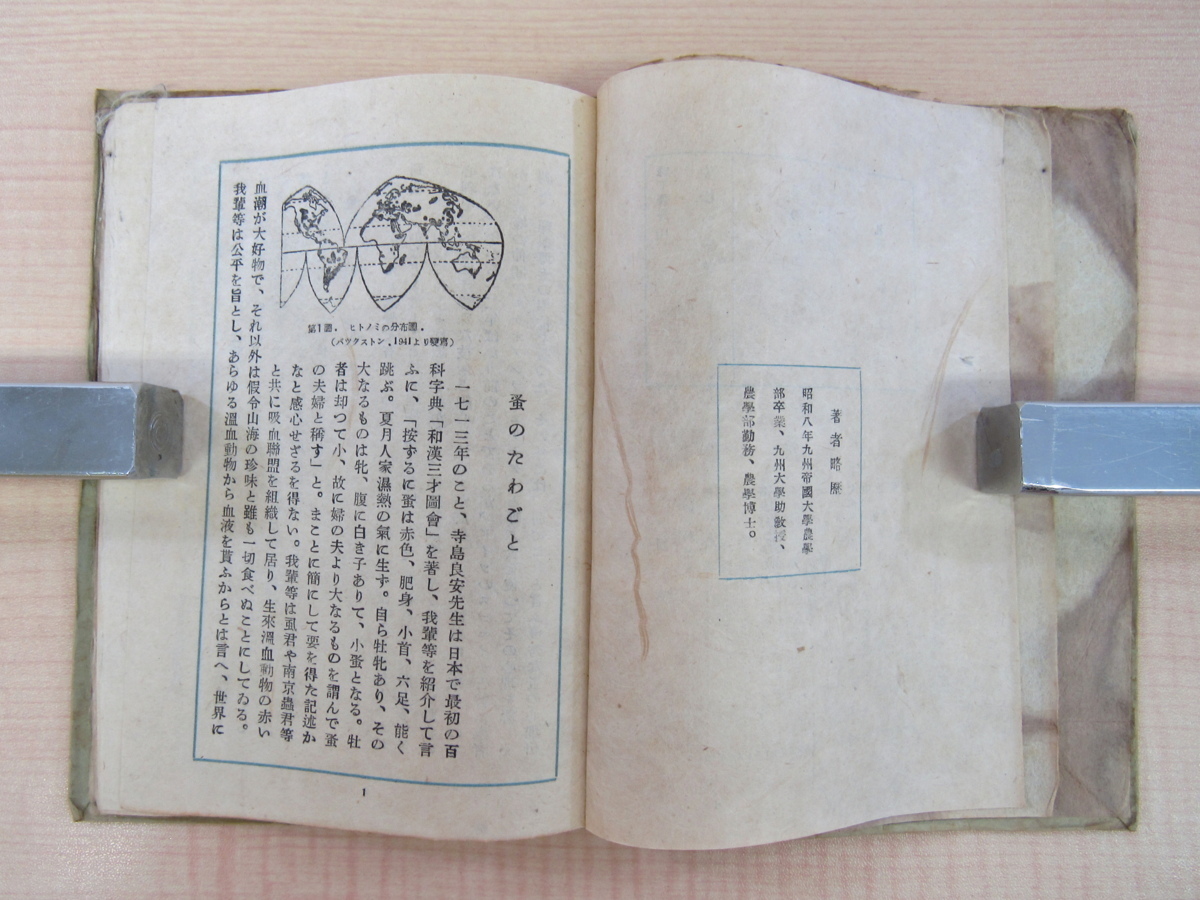 著者略歴
昭和八年九州帝國大學農學
部卒業、九州大學助教授、
農學部勤務、農學博士。
蚤のたわごと
一七一三年のこと、寺島良安先生は日本で最初の百
科字典「和漢三才圖會」を著し、我輩等を紹介して言
ふに、「按ずるに蚤は赤色、肥身、小首、六足、能く
跳ぶ。夏月人家濕熱の氣に生ず。自ら牡牝あり、その
大なるものは牝、腹に白き子ありて、小蚤となる。牡
者は却つて小、故に婦の夫より大なるものを謂んで蚤
の夫婦と稱す」と。まことに簡にして要を得た記述か
なと感心せざるを得ない。我輩等は虱君や南京蟲君等
と共に吸血聯盟を組織して居り、生來溫血動物の赤い
血潮が大好物で、それ以外は假令山海の珍味と雖も一切食べぬことにしてゐる。
我輩等は公平を旨とし、あらゆる溫血動物から血液を貰ふからとは言へ、世界に
第1圖. ヒトノミの分布圖.
(バツクストン, 1941より變寫)
1